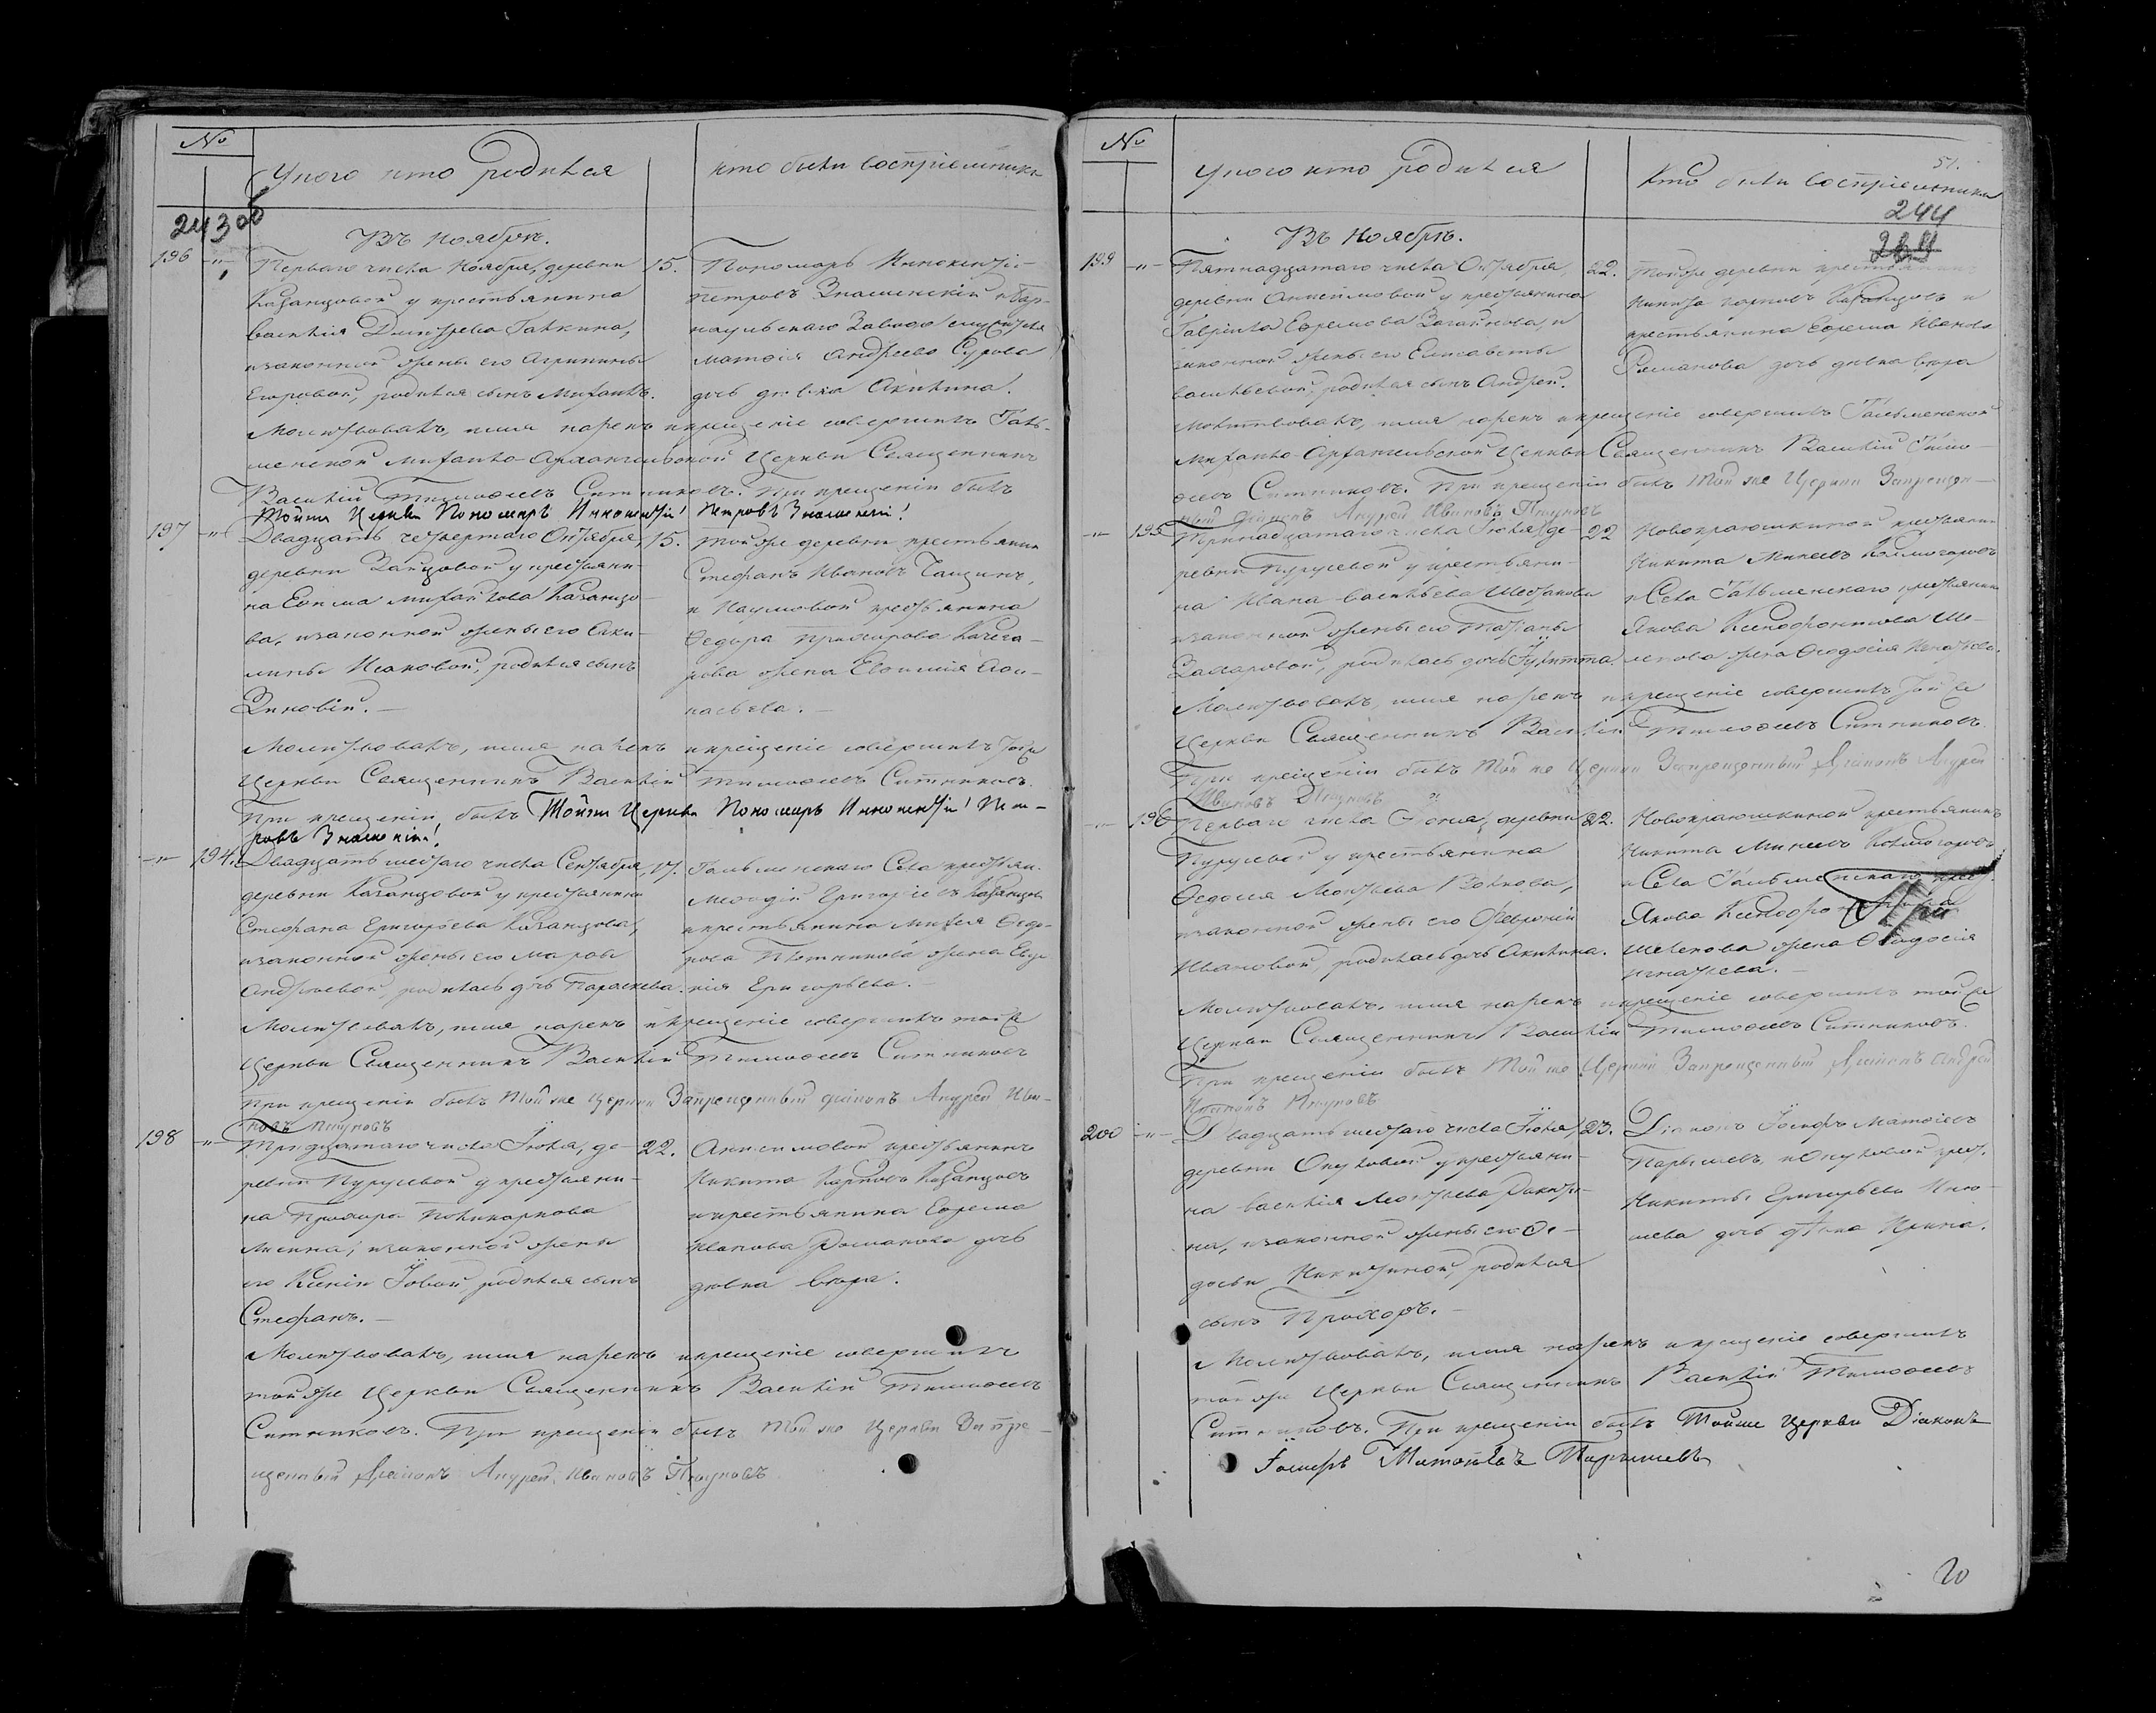 №
У кого кто родился
кто были воспріемники
243 об
Въ Ноябрѣ.
196 -"-
Перваго числа Ноября, деревни
Казанцовой у крестьянина
Василія Дмитрева Галкина,
и законной жены его Агрипины
Егоровой, родился сынъ Михаилъ.
15.
Пономарь Инокентій
Петровъ Знаменскій и Бар-
наульскаго Завода служителя
Матѳія Андреева Сурова
дочь дѣвка Акилина.
Молитвовалъ, имя нарекъ и крещеніе совершилъ Таль-
менской Михаило-Архангельской Церкви Священникъ
Василій Тимоѳеевъ Ситниковъ. При крещеніи былъ
Тойже Церкви Пономаръ Инокентій Петровъ Знаменскій
197 -"-
Двадцать четвертаго Октября,
деревни Зайцовой у крестьяни-
на Евѳима Михайлова Казанцо-
ва, и законной жены его Аки-
лины Исаковой, родился сынъ
Зиновій.
15.
Той же деревни крестьянин
Стефанъ Ивановъ Чащинъ,
и Наумовой крестьянина
Ѳедора Прохорова Качега-
рова жена Евѳимія Аѳа-
насьева.
Молитвовалъ, имя нарекъ и крещеніе совершилъ тойже
Церкви Священникъ Василій Тимоѳеевъ Ситниковъ.
При крещеніи былъ Тойже Церкви Пономаръ Инокентій Пет-
ровъ Знаменскій
-"- 194.
Двадцать шестаго числа Сентября,
деревни Казанцовой у крестьянина
Стефана Григорьева Казанцова,
и законной жены его Марѳы
Андреевой, родилась дочь Параскева.
17.
Тальменскаго Села крестьян.
Меѳодій Григорьевъ Казанцовъ
и крестьянина Михея Ѳедо-
рова Плотникова жена Евге-
нія Григорьева.
Молитвовалъ, имя нарекъ и крещеніе совершилъ той же
Церкви Священникъ Василій Тимоѳеевъ Ситниковъ
При крещеніи былъ Той же Церкви Запрещенный Діаконъ Андрей Ива-
новъ
198 -"-
Тридцатаго числа Іюля, де-
ревни Пурусевой у крестьяни-
на Прохора Поликарпова
и законной жены
его Ксеніи Іовой, родился сынъ
Стефанъ.
22.
Анисимовой крестьянинъ
Никита Карповъ Казанцовъ
и крестьянина Ефрема
Иванова Романова дочь
дѣвка Вѣра.
Молитвовалъ, имя нарекъ и крещеніе совершилъ
той же Церкви Священникъ Василій Тимоѳеевъ
Ситниковъ. При крещеніи былъ Той же Церкви Запре-
щенный Діаконъ Андрей Ивановъ
№
У кого кто родился
Кто были воспріемники
51.
244
Въ Ноябрѣ.
199 -"-
Пятнадцатаго числа Октября,
деревни Анисимовой у крестьянина
Гавріила Ефремова Загайнова, и
законной жены его Елисаветы
Васильевой, родился сынъ Андрей.
22.
Той же деревни крестьянинъ
Никита Карповъ Казанцовъ и
крестьянина Ефрема Иванова
Романова дочь дѣвка Вѣра
Молитвовалъ, имя нарекъ и крещеніе совершилъ Тальменской
Михаило-Архангельской Церкви Священникъ Василій Тимо-
ѳеевъ Ситниковъ. При крещеніи былъ Той же Церкви Запрещен-
ный Діаконъ Андрей Ивановъ
-"- 195
Тринадцатаго числа Іюля, де-
ревни Пурусевой у крестьяни-
на Ивана Васильева
и законной жены его Татіаны
Захаровой, родилась дочь Іулитта.
22
Новокраюшкиной крестьянин
Никита Минеевъ Колмогоровъ
и Села Тальменскаго крестьянин
Якова Ксенофонтова Ше-
лепова жена Ѳеодосія Игнатьева.
Молитвовалъ, имя нарекъ и крещеніе совершилъ той же
Церкви Священникъ Василій Тимоѳеевъ Ситниковъ.
При крещеніи былъ Той же Церкви Запрещенный Діаконъ Андрей
Ивановъ
-"- 196
Перваго числа Іюня, деревни
Пурусевой у крестьянина
Ѳедосея Волкова,
и законной жены его Февроніи
Ивановой, родилась дочь Акилина.
22.
Новокраюшкиной крестьянинъ
Никита Минеевъ Колмогоровъ
и Села Тальменскаго
Якова
Шелепова жена Ѳеодосія
Игнатьева.
Молитвовалъ, имя нарекъ и крещеніе совершилъ той же
Церкви Священникъ Василій Тимоѳеевъ Ситниковъ.
При крещеніи былъ Той же Церкви Запрещенный Діаконъ Андрей
Ивановъ
200 -"-
Двадцать шестаго числа Іюля,
деревни у крестьяни-
на Василія
на, и законной жены его Ѳе-
досьи Никитиной, родился
сынъ Прохоръ.
23.
Діаконъ Іосифъ Матѳіевъ
Парышевъ, и крест.
Никиты Григорьева
дочь дѣвка Ирина.
Молитвовалъ, имя нарекъ и крещеніе совершилъ
той же Церкви Священникъ Василій Тимоѳеевъ
Ситниковъ. При крещеніи былъ Тойже Церкви Діаконъ
Іосифъ Матѳіевъ Парышевъ
20